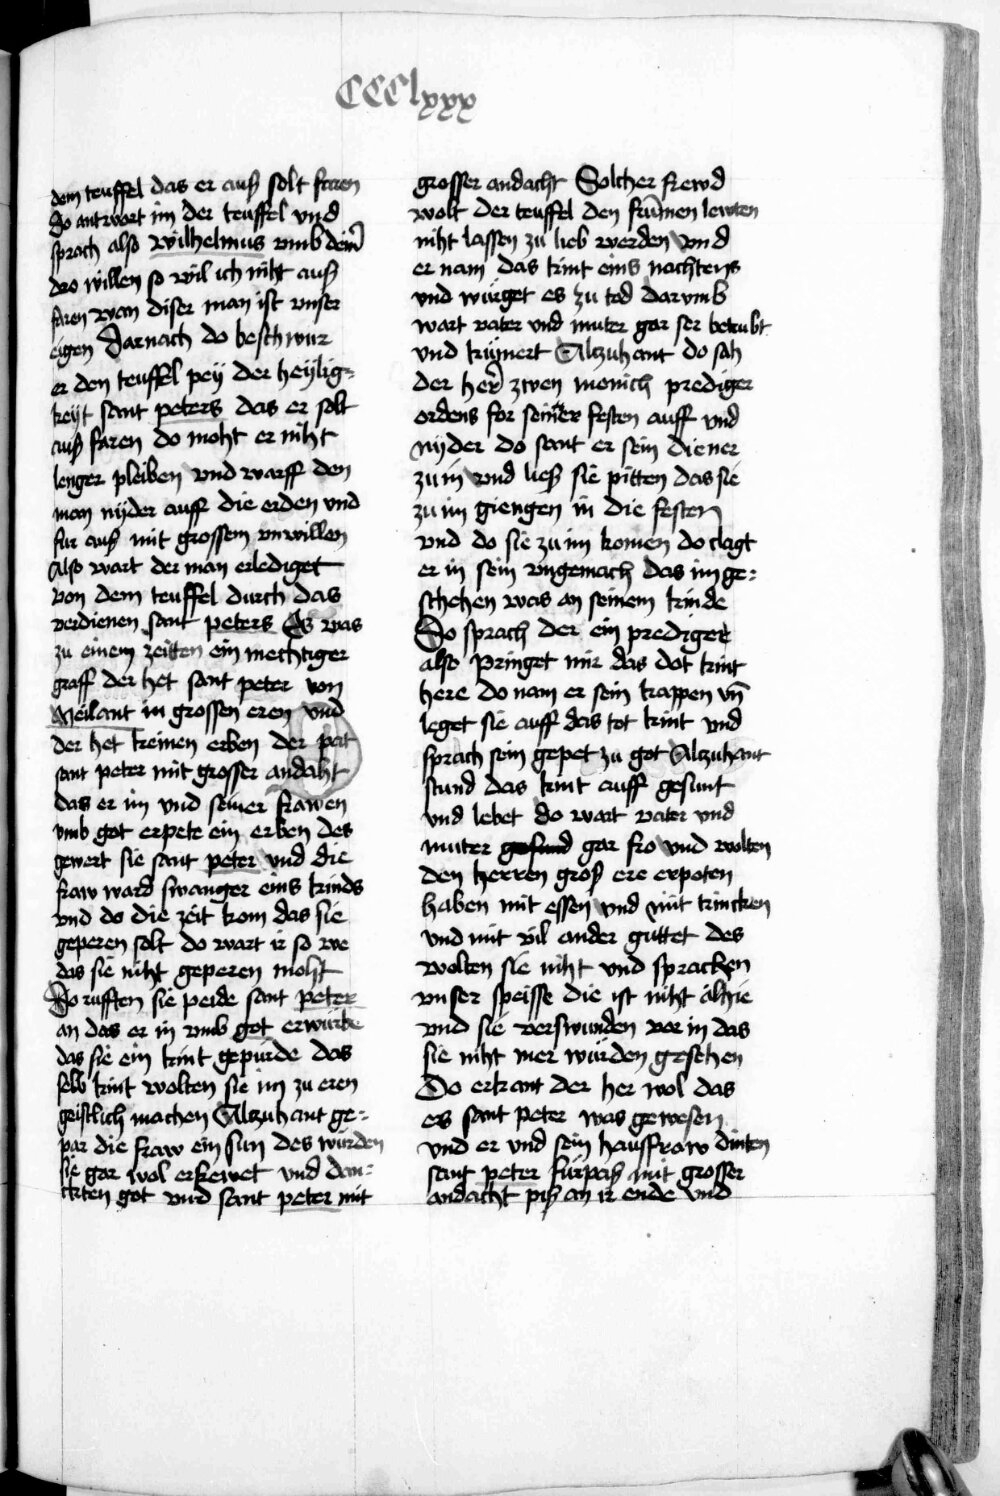 CCClxxx
dem teuffel das er auß solt faren
Do antwort im der teuffel vnd
sprach also wilhelmus vmb dein
dro willen so wil ich niht auß
faren wan diser man ist vnser
eigen Darnach do beschwur
er den teuffel pey der heylig=
keyt sant peters das er solt
auß faren do moht er niht
lenger pleiben vnd warff den
man nyder auff die erden vnd
fur auß mit grossem vnwillen
Also wart der man erlediget
von dem teuffel durch das
verdienen sant peters Es was
zu einem zeitten ein mechtiger
graff der het sant peter von
Meilant in grossen eren vnd
der het keinen erben der pat
sant peter mit grosser andaht
das er im vnd seiner frawen
vmb got erpete ein erben des
gewert sie sant peter vnd die
fraw ward swanger eins kinds
vnd do die zeit kom das sie
geperen solt do wart ir so we
das sie niht geperen moht
Do rufften sie peide sant peter
an das er in vmb got erwürbe
das sie ein kint gepürde das
selb kint wolten sie im zu eren
geistlich machen Alzuhant ge=
par die fraw ein sun des wurden
sie gar wol erfrewet vnd dan=
ckten got vnd sant peter mit
grosser andacht Solcher frewd
wolt der teuffel den frümen lewten
niht lassen zu lieb werden vnd
er nam das kint eins nachtens
vnd würget es zu tod darvmb
wart vater vnd muter gar ser betrubt
vnd kümert Alzuhant do sah
der her zwen monich prediger
ordens for seiner festen auff vnd
nyder do sant er sein diener
zu in vnd ließ sie pitten das sie
zu im giengen in die festen
vnd do sie zu im komen do clagt
er in sein vngemach das im ge=
schehen was an seinem kinde
Do sprach der ein prediger
also Pringet mir das dot kint
here do nam er sein kappen vn̄
leget sie auff das tot kint vnd
sprach sein gepet zu got Alzuhant
stund das kint auff gesunt
vnd lebet do wart vater vnd
muter gesund gar fro vnd wolten
den herren groß ere erpoten
haben mit essen vnd mit trincken
vnd mit vil ander guttet des
wolten sie niht vnd sprachen
vnser speisse die ist niht alhie
vnd sie verswunden vor in das
sie niht mer würden gesehen
Do erkant der her wol das
es sant peter was gewesen
vnd er vnd sein haußfraw dinten
sant peter fürpaß mit grosser
andacht piß an ir ende vnd